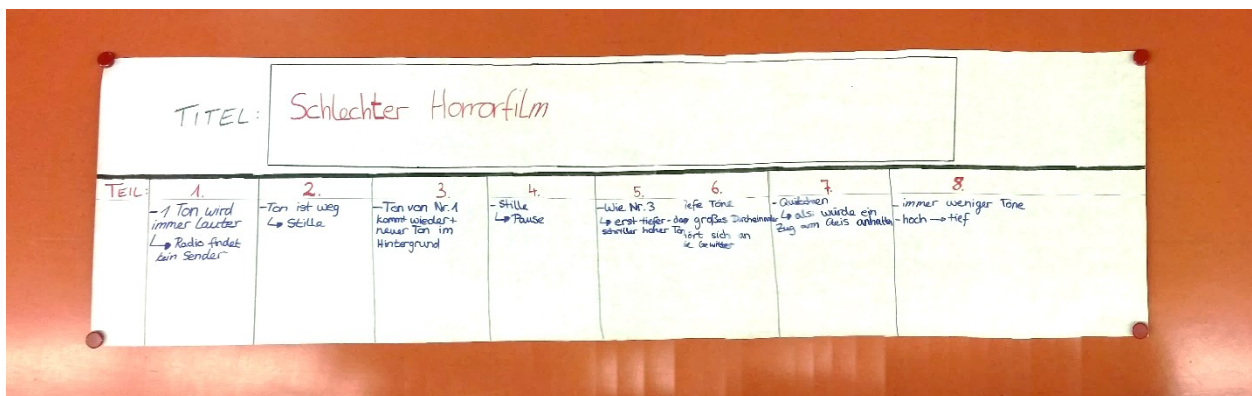 TITEL: Schlechter Horrorfilm
TEIL:
1.
- 1 Ton wird
immer lauter
↳ Radio findet
kein Sender
2.
- Ton ist weg
↳ Stille
3.
- Ton von Nr. 1
kommt wieder +
neuer Ton im
Hintergrund
4.
- Stille
↳ Pause
5.
- Wie Nr. 3
↳ erst tiefer - dan
schriller hoher Ton
6.
iefe Töne
großes
hört sich an
ie Gewitter
7.
- Quitschen
↳ als würde ein
Zug am Gleis anhalten
8.
- immer weniger Töne
- hoch → tief